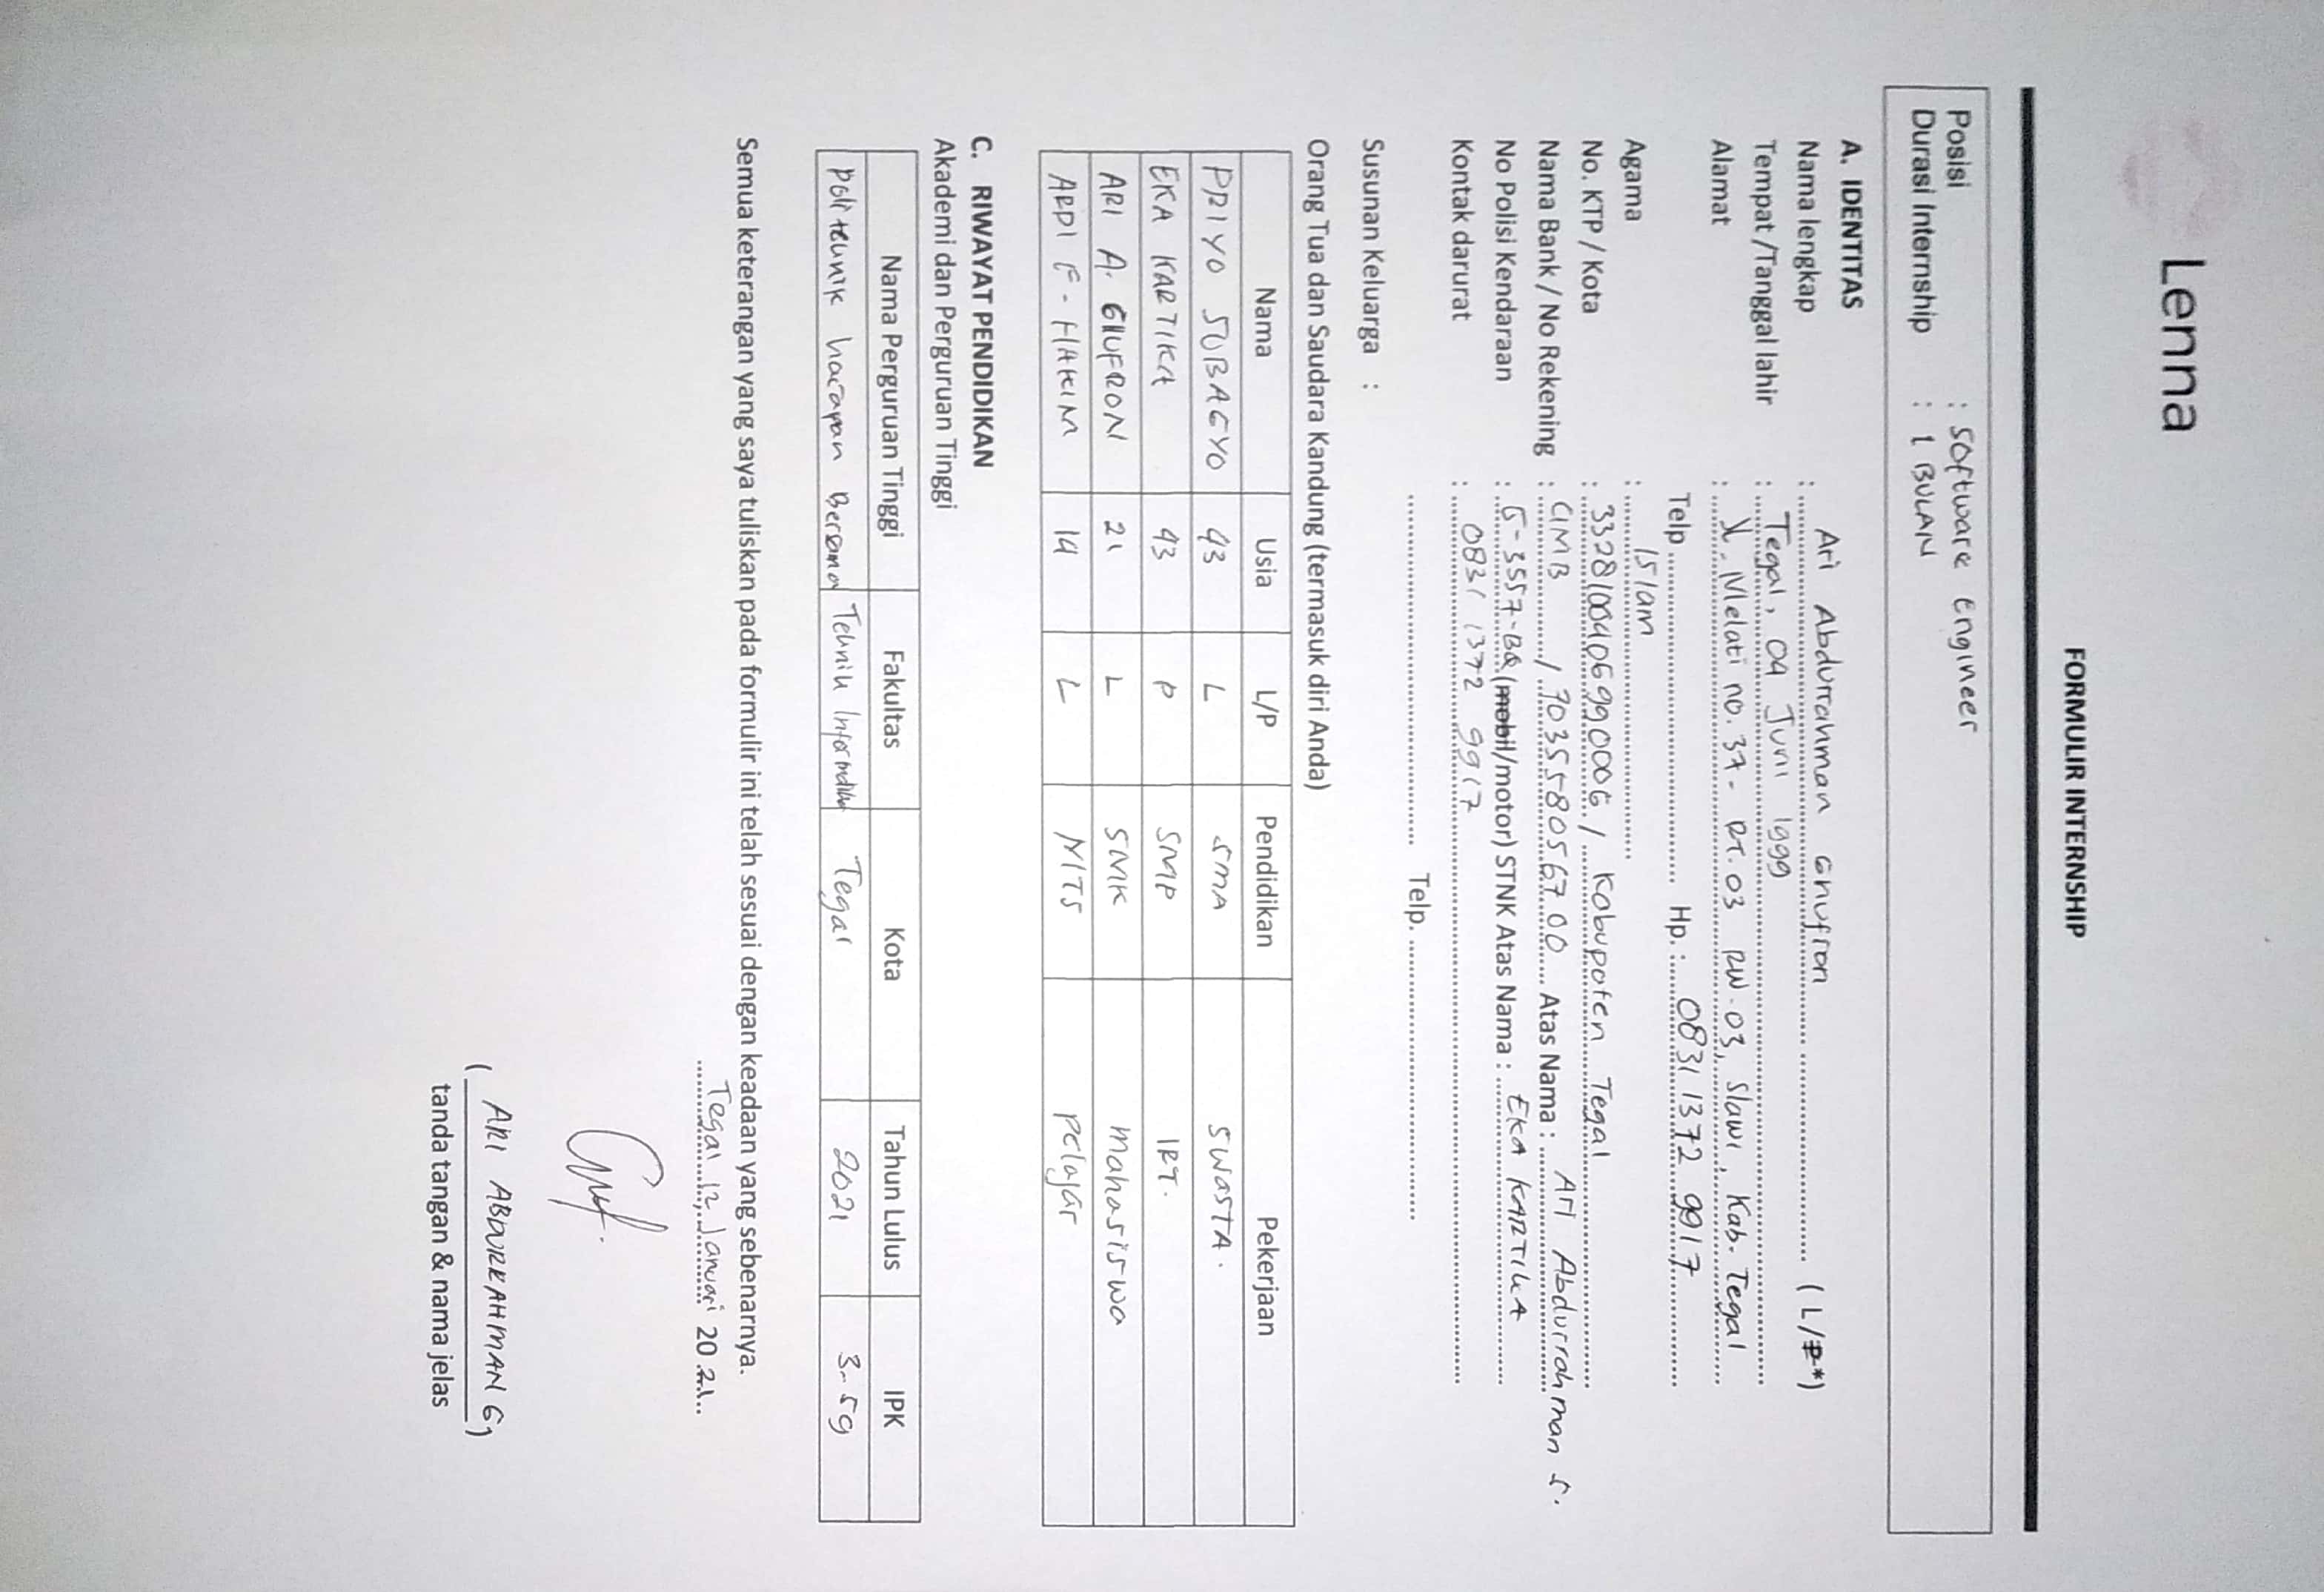 Lenna
FORMULIR INTERNSHIP
Posisi : Software Engineer
Durasi Internship : 1 BULAN
A. IDENTITAS
Nama lengkap : Ari Abdurrahman Ghufron ( L/P*)
Tempat /Tanggal lahir : Tegal, 04 Juni 1999
Alamat : Jl. Melati no. 37 - RT. 03 RW. 03, Slawi, Kab. Tegal
Telp Hp. : 0831 1372 9917
Agama : Islam
No. KTP / Kota : 3328100406990006 / Kabupaten Tegal
Nama Bank / No Rekening : CIMB / 703558056700 Atas Nama : Ari Abdurrahman G.
No Polisi Kendaraan : G-3557-BQ (mobil/motor) STNK Atas Nama : EKA KARTIKA
Kontak darurat : 0831 1372 9917
Telp.
Susunan Keluarga :
Orang Tua dan Saudara Kandung (termasuk diri Anda)
Nama Usia L/P Pendidikan Pekerjaan
PRIYO SUBAGYO 43 L SMA SWASTA.
EKA KARTIKA 43 P SMP IRT.
ARI A. GHUFRON 21 L SMK mahasiswa
ARDI F - HAKIM 14 L MTS pelajar
C. RIWAYAT PENDIDIKAN
Akademi dan Perguruan Tinggi
Nama Perguruan Tinggi Fakultas Kota Tahun Lulus IPK
Politeknik harapan Bersama Teknik Informatika Tegal 2021 3.59
Semua keterangan yang saya tuliskan pada formulir ini telah sesuai dengan keadaan yang sebenarnya.
Tegal 12, Januari 20 21
( ARI ABDURRAHMAN G )
tanda tangan & nama jelas